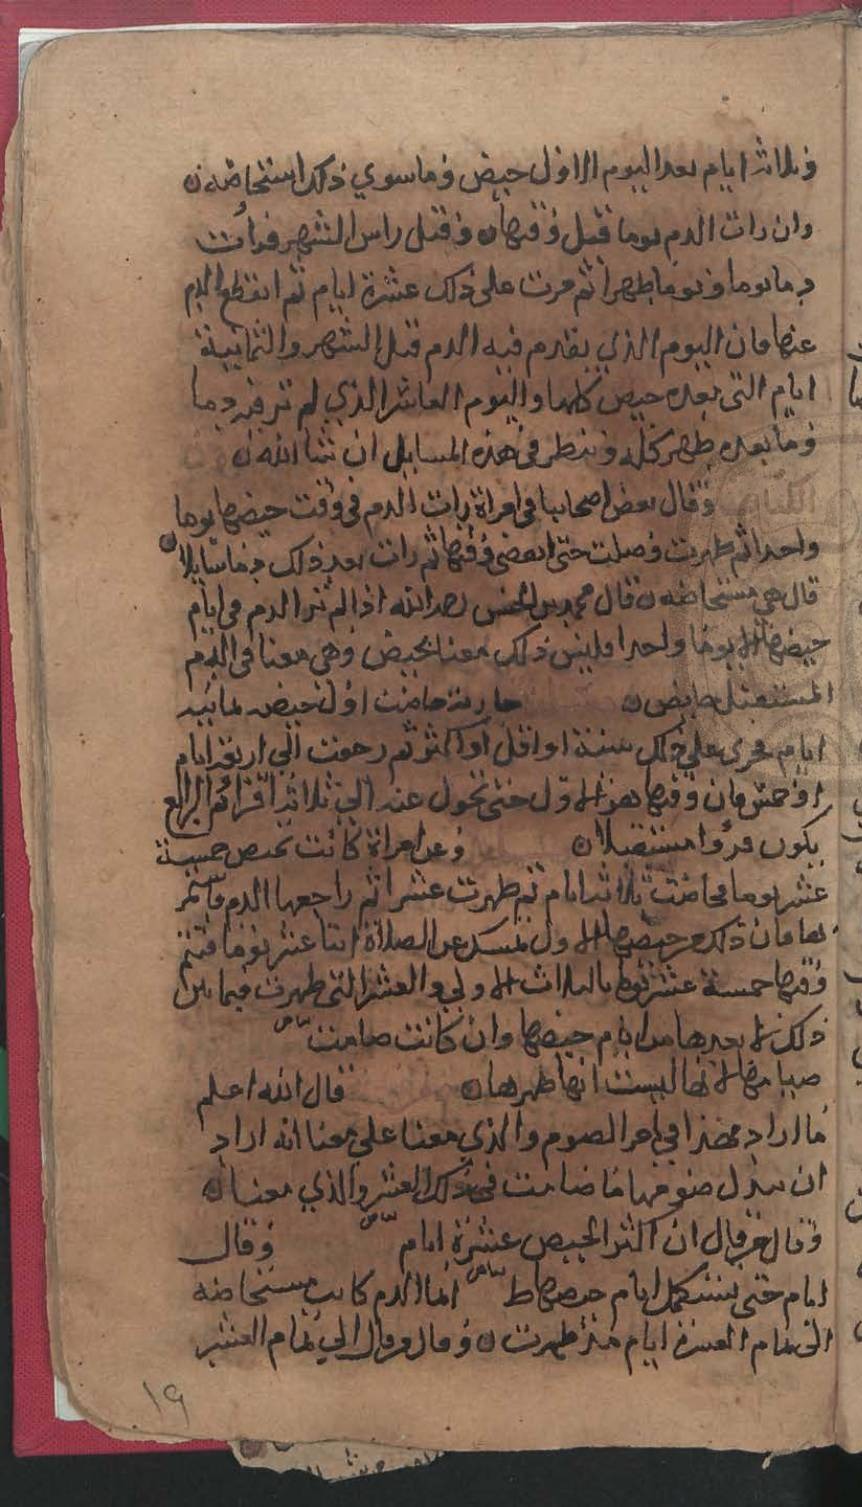 وثلاثة ايام بعد اليوم الاول حيض وما سوي ذلك استحاضة ه
وان رات الدم يوما قبل وقتها ه وقبل راس الشهر فرأت
دما يوما ويوما طهرا ثم مرت علي ذلك عشرة ايام ثم انقطع الدم
عنها فان اليوم الذي يقدم فيه الدم قبل الشهر والثمانية
ايام التي بعده حيض كلها واليوم العاشر الذي لم تر فيه دما
وما بعده طهر كله وينظر في هذه المسايل ان شا الله ه
وقال بعض اصحابنا في امراة رات الدم في وقت حيضها يوما
واحدا ثم طهرت وصلت حتي انقضي وقتها ثم رات بعد ذلك دما سايلا ه
قال هي مستحاضة ه قال محمد بن الحسن رحمه الله اذا لم تر الدم في ايام
حيضها الا يوما واحدا فليس ذلك معنا بحيض وهي معنا في الدم
المستقبل حايض ه جارية حاضت اول حيضه ثمانية
ايام فجري علي ذلك سنة او اقل او اكثر ثم رجعت الي اربعة ايام
او خمس فان وقتها هو الاول حتي تحول عنه الي ثلاثة اقراء ثم الرابع
يكون قرؤا مستقبلا ه وعن امراة كانت تحيض خمسة
عشر يوما فحاضت ثلاثة ايام ثم طهرت عشرا ثم راجعها الدم فاستمر
بها فان ذلك من حيضها الاول تمسك عن الصلاة اثنا عشر يوما فتتم
وقتها خمسة عشر يوما بالثلاث الاولي والعشر التي طهرت فيما بين
ذلك لا يعدها من ايام حيضها وان كانت صامت
صيامها لانها ليست انها طهرها ه قال الله اعلم
ما اراد بهذا في امر الصوم والذي معنا علي معنا انه اراد
ان يبدل صومها ما صامت في ذلك العشر والذي معنا ه
وقال من قال ان اكثر الحيض عشرة ايام وقال
ايام حتي تستكمل ايام حيضها ط الدم كانت مستحاضة
الي تمام العشرة ايام منذ طهرت ه وقال من قال الي تمام العشر
١٩